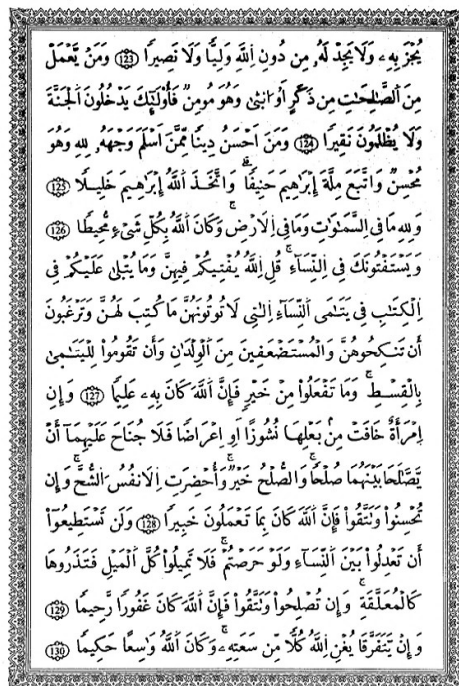 يُجْزَ بِهِۦ وَلَا يَجِدْ لَهُۥ مِن دُونِ اِ۬للَّهِ وَلِيّٗا وَلَا نَصِيرٗا 123 وَمَنْ يَّعْمَلْ
مِنَ اَ۬لصَّٰلِحَٰتِ مِن ذَكَرٍ اَوُ ا۟نث۪يٰ وَهُوَ مُومِنٞ فَأُوْلَٰٓئِكَ يَدْخُلُونَ اَ۬لْجَنَّةَ
وَلَا يُظْلَمُونَ نَقِيرٗا 124 وَمَنَ اَحْسَنُ دِينٗا مِّمَّنَ اَسْلَمَ وَجْهَهُۥ لِلهِ وَهُوَ
مُحْسِنٞ وَاتَّبَعَ مِلَّةَ إِبْرَٰهِيمَ حَنِيفٗاۖ وَاتَّخَذَ اَ۬للَّهُ إِبْرَٰهِيمَ خَلِيلٗا 125
وَلِلهِ مَا فِي اِ۬لسَّمَٰوَٰتِ وَمَا فِي اِ۬لَارْضِۖ وَكَانَ اَ۬للَّهُ بِكُلِّ شَےْءٖ مُّحِيطٗا 126
وَيَسْتَفْتُونَكَ فِي اِ۬لنِّسَآءِۖ قُلِ اِ۬للَّهُ يُفْتِيكُمْ فِيهِنَّ وَمَا يُتْل۪يٰ عَلَيْكُمْ فِي
اِ۬لْكِتَٰبِ فِي يَتَٰمَي اَ۬لنِّسَآءِ اِ۬لتِي لَا تُوتُونَهُنَّ مَا كُتِبَ لَهُنَّ وَتَرْغَبُونَ
أَن تَنكِحُوهُنَّ وَالْمُسْتَضْعَفِينَ مِنَ اَ۬لْوِلْدَٰنِ وَأَن تَقُومُواْ لِلْيَتَٰم۪يٰ
بِالْقِسْطِۖ وَمَا تَفْعَلُواْ مِنْ خَيْرٖ فَإِنَّ اَ۬للَّهَ كَانَ بِهِۦ عَلِيمٗا 127 وَإِنِ
اِ۪مْرَأَةٌ خَافَتْ مِنۢ بَعْلِهَا نُشُوزًا اَوِ اِعْرَاضٗا فَلَا جُنَاحَ عَلَيْهِمَآ أَنْ
يَّصَّٰلَحَا بَيْنَهُمَا صُلْحٗاۖ وَالصُّلْحُ خَيْرٞۖ وَأُحْضِرَتِ اِ۬لَانفُسُ اُ۬لشُّحَّۖ وَإِن
تُحْسِنُواْ وَتَتَّقُواْ فَإِنَّ اَ۬للَّهَ كَانَ بِمَا تَعْمَلُونَ خَبِيرٗا 128 وَلَن تَسْتَطِيعُوٓاْ
أَن تَعْدِلُواْ بَيْنَ اَ۬لنِّسَآءِ وَلَوْ حَرَصْتُمْۖ فَلَا تَمِيلُواْ كُلَّ اَ۬لْمَيْلِ فَتَذَرُوهَا
كَالْمُعَلَّقَةِۖ وَإِن تُصْلِحُواْ وَتَتَّقُواْ فَإِنَّ اَ۬للَّهَ كَانَ غَفُورٗا رَّحِيمٗا 129
وَإِنْ يَّتَفَرَّقَا يُغْنِ اِ۬للَّهُ كُلّٗا مِّن سَعَتِهِۦۖ وَكَانَ اَ۬للَّهُ وَٰسِعًا حَكِيمٗا 130